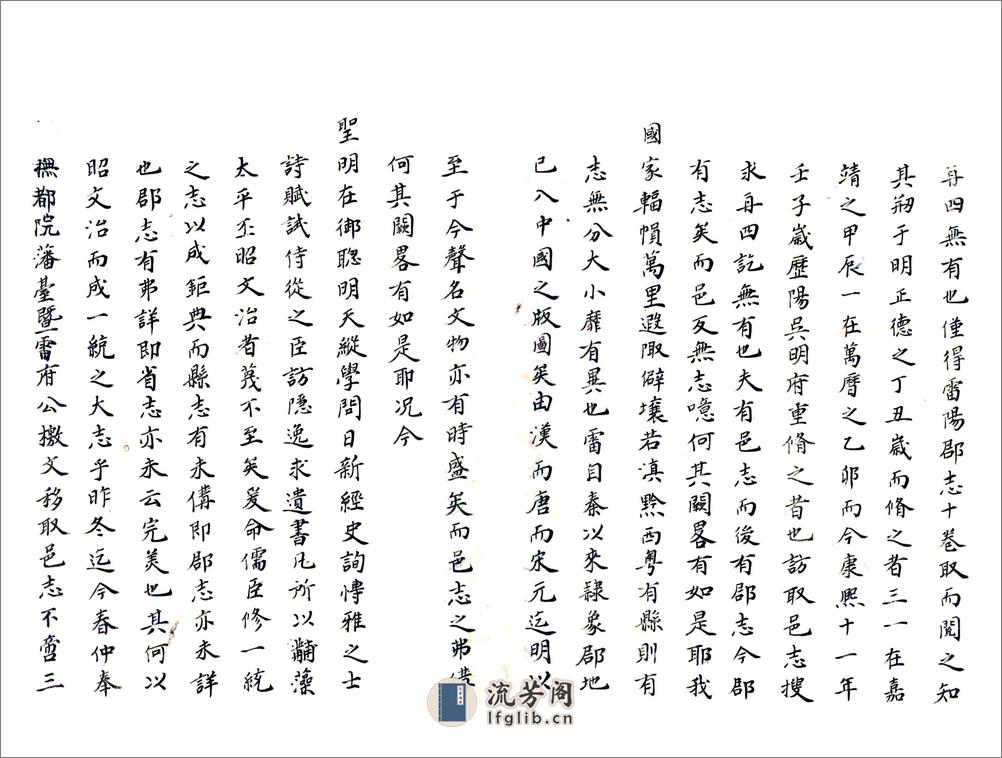 再四無有也僅得雷陽郡志十卷取而閱之知
其刱于明正德之丁丑歲而脩之者三一在嘉
靖之甲辰一在萬曆之乙卯而今康熙十一年
壬子歲歷陽吳明府重脩之昔也訪取邑志搜
求再四訖無有也夫有邑志而後有郡志今郡
有志矣而邑反無志噫何其闕畧有如是耶我
國家輻幀萬里遐陬僻壤若滇黔西粤有縣則有
志無分大小靡有異也雷自秦以來隸象郡地
已入中國之版圖矣由漢而唐而宋元迄明以
至于今聲名文物亦有時盛矣而邑志之弗備
何其闕畧有如是耶况今
聖明在御聰明天縱學問日新經史詢博雅之士
詩賦試侍從之臣訪隱逸求遺書凡所以黼藻
太平丕昭文治者蔑不至矣爰命儒臣修一統
之志以成鉅典而縣志有未備即郡志亦未詳
也郡志有弗詳即省志亦未云完美也其何以
昭文治而成一統之大志乎昨冬迄今春仲奉
撫都院藩臺暨雷府公檄文移取邑志不啻三
流芳阁
lfglib.cn